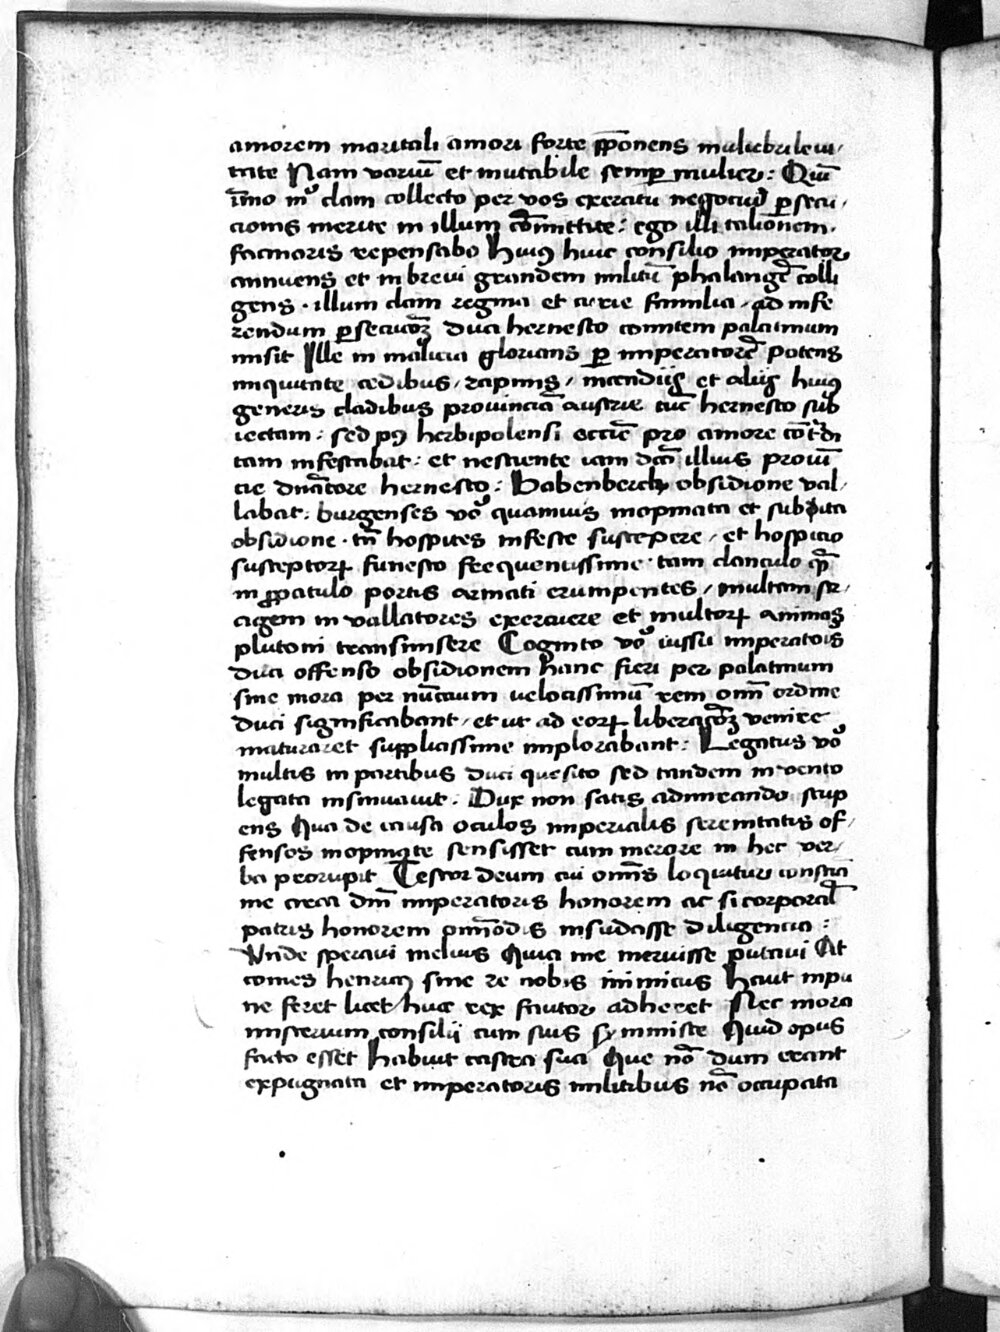 amorem maritali amori forte p̄ponens muliebri leui,
tate Nam variū et mutabile semꝑ mulier: Quī
īmo mͦ clam collecto per vos exercitu negociū ꝑsecu,
cionis merite in illum cōmittite: ego illi talionem
facinoris repensabo Huiꝰ huic consilio imperator
annuens et in breui grandem militū phalangē colli
gens · illum clam regina et curie familia, ad infe
rendum ꝑsecucōꝫ duci hernesto comitem palatinum
misit Ille in malicia glorians ꝑ imperatorē potens
iniquitate cedibus, rapinis, incendijs et alijs huiꝰ
generis cladibus prouinciā austrie tūc hernesto sub
iectam: sed pꝰ herbipolensi eccīe pro amore
tam infestabat: et nesciente iam dcō illius prouī
cie dn̄atore hernesto: Babenberch obsidione val,
labat: burgenses vͦo quamuis inopinata et subita
obsidione · tn̄ hospites infeste suscepere, et hospicio
susceptoꝝ funesto frequentissime · tam clanculo qͣꝫ
in ꝓpatulo portis armati erumpentes, multam st̄,
agem in vallatores exercuere et multoꝝ animas
plutoni transmisere Cognito vͦo iussu imperatoris
duci offenso obsidionem hanc fieri per palatinum
sine mora per nūccium velocissimū rem om̄i ordine
duci significabant, et ut ad eoꝝ liberacōꝫ venire
maturaret supplicissime implorabant: Legatus vͦo
multis in partibus duci quesito sed tandem inuento
legata insinuauit: Dux non satis admirando stup
ens Qua de causa oculos imperialis serenitatis of,
fensos inopinate sensisset cum merore in hec ver,
ba prorupit Testor deum cui om̄s loquitur consciā
me circa dn̄i imperatoris honorem ac si corporal̄
patris honorem om̄imodis insudasse diligencia:
Vnde speraui melius Quia me meruisse putaui At
comes henricꝰ sine re nobis inimicus Haut inpu
ne feret licet huic rex fautor adheret Nec mora
misterium consilij cum suis symmiste Quid opus
facto esset Habuit castra sua Que nō dum erant
expugnata et imperatoris militibus nō occupata